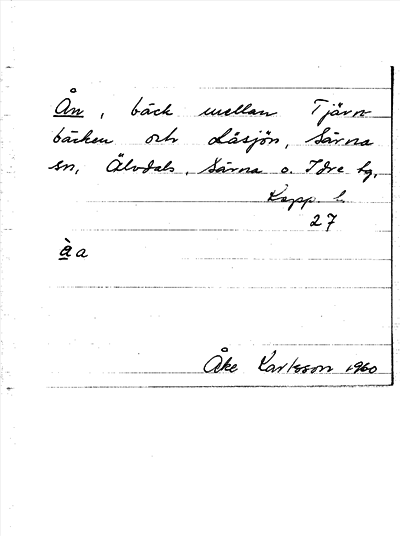 Ån, bäck mellan Tjärn-
bäcken och Låsjön, Särna
sn, Älvdals, Särna o. Idre tg,
Kopp. l.
27
àa
Åke Karlsson 1960